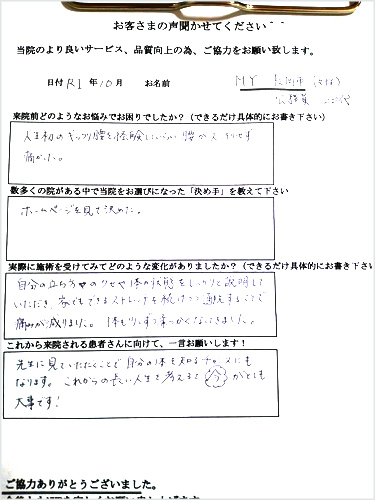 お客さまの声聞かせてください
当院のより良いサービス、品質向上の為、ご協力をお願い致します。
日付 R1 年 10 月 お名前 MY
来院前どのようなお悩みでお困りでしたか？（できるだけ具体的にお書き下さい）
人生初のギックリ腰を経験し 腰が スッキリせず
痛かった。
数多くの院がある中で当院をお選びになった「決め手」を教えて下さい
ホームページを見て決めた。
実際に施術を受けてみてどのような変化がありましたか？（できるだけ具体的にお書き下さい
自分の立ち方やのクセや体の状態をしっかりと説明して
いただき、家でもできるストレッチを続けて 教えることで
痛みが減りました。体も少しずつ柔らかくなってきました。
これから来院される患者さんに向けて、一言お願いします！
先生に見ていただくことで自分の体を知るチャンスにも
なります。これからの長い人生を考えると 今 がとても
大事です！
ご協力ありがとうございました。